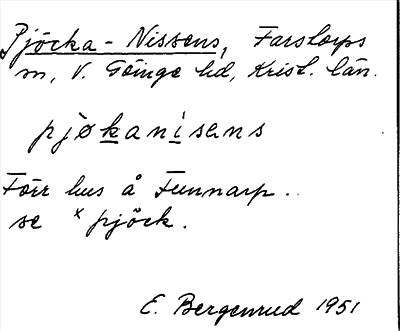 Pjöcka-Nissens, Farstorps
sn, V. Göinge hd, Krist. län.
pjøkanisens
Förr hus å Funnarp.
se ˣpjöck.
E. Bergenrud 1951